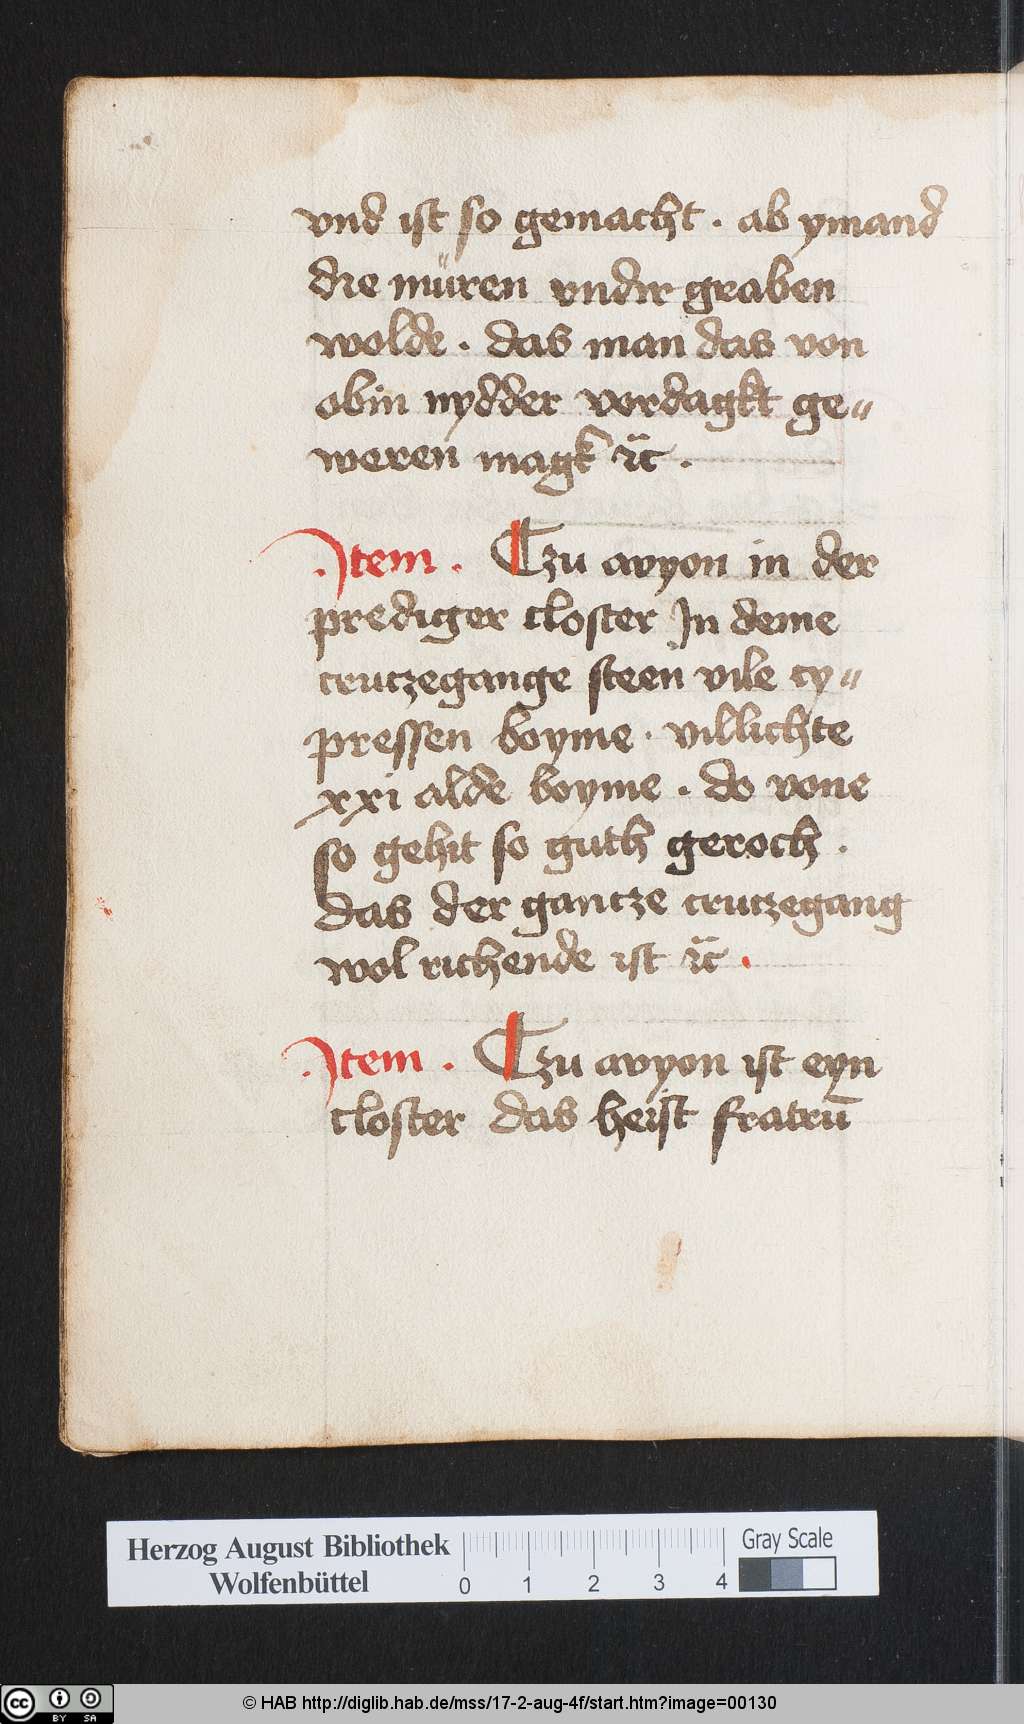 vnd ist so gemacht . ab ymand
die müren vndir graben
wolde . das man das von
obin nydder vordagkt ge„
weren magk ꝛc̃ .
Item . Czu avyon in der
prediger closter In deme
crutzegange steen vile cy„
pressen boyme . villichte
xxi alde boyme . do vone
so gehit so guth geroch .
das der gantze crutzegang
wol richende ist ꝛc̃ .
Item . Czu avyon ist eyn
closter das heist fratrū
Herzog August Bibliothek
Wolfenbüttel
0 1 2 3 4
Gray Scale
cc BY SA
© HAB http://diglib.hab.de/mss/17-2-aug-4f/start.htm?image=00130